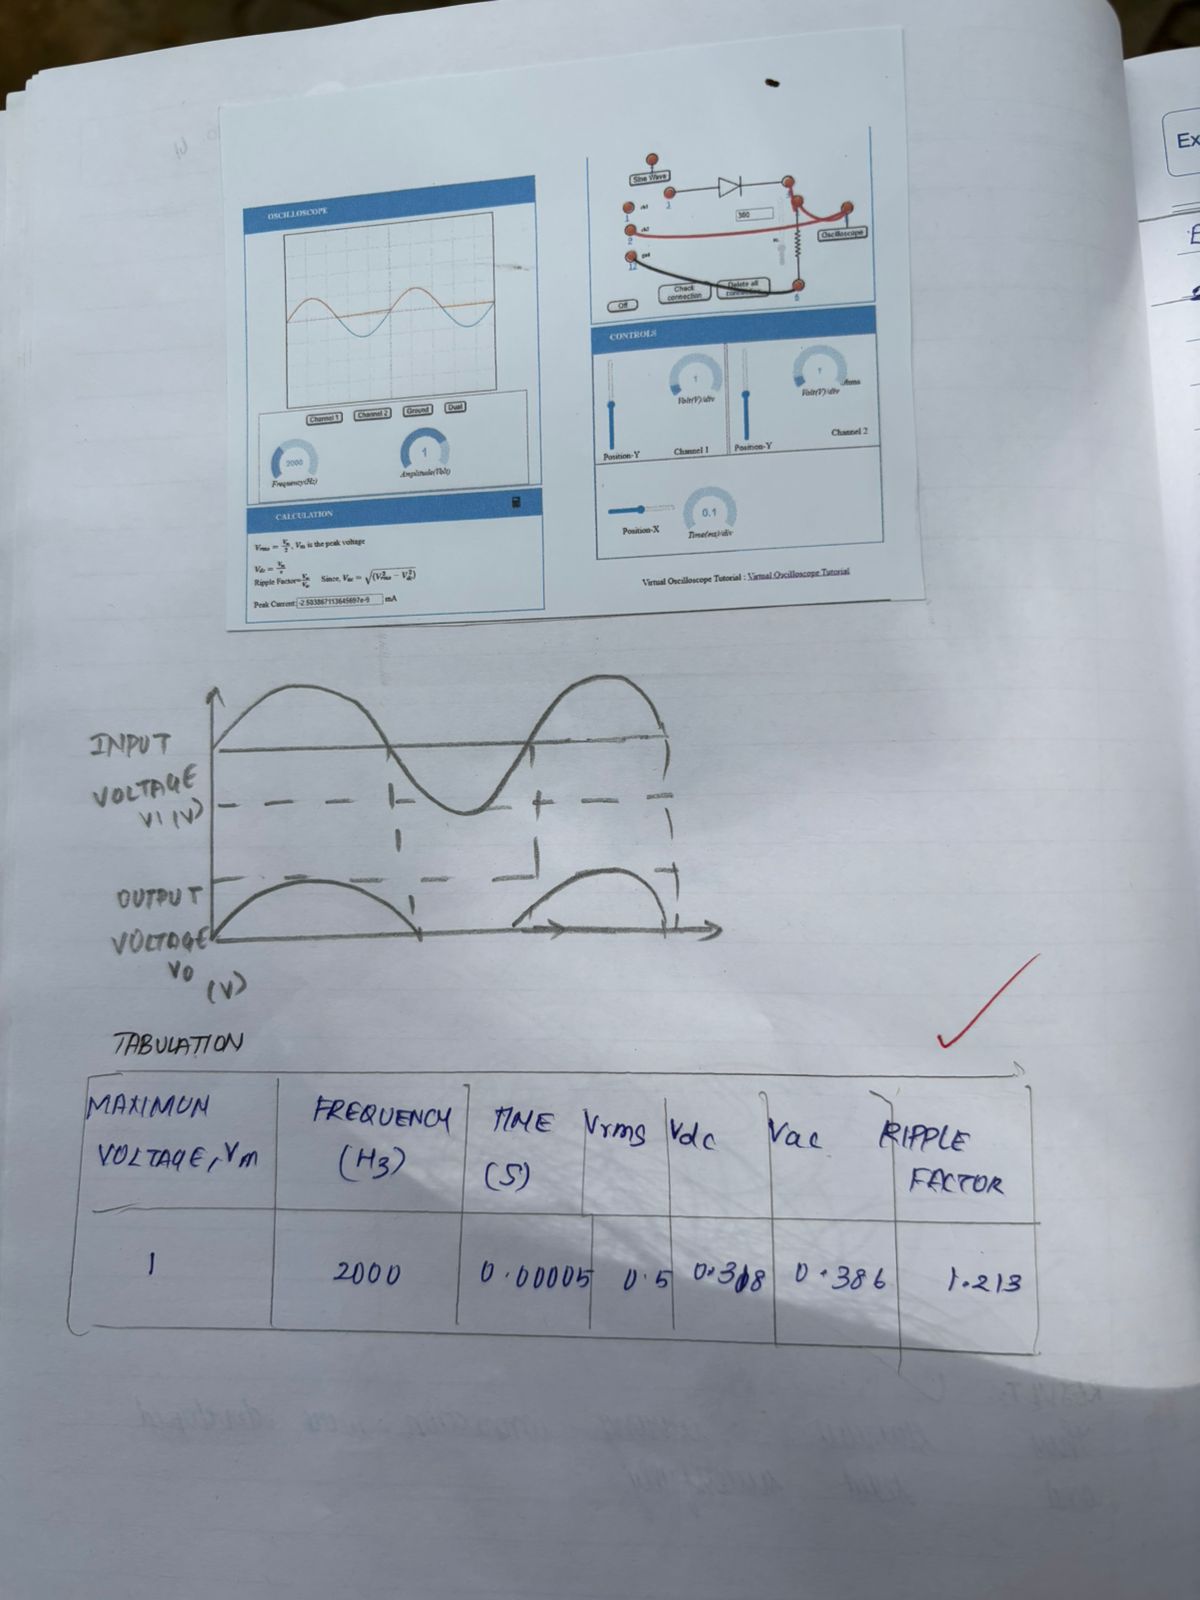 Ex
OSCILLOSCOPE
Channel 1 Channel 2 Ground Dual
2000
Frequency(Hz)
1
Amplitude(Volt)
CALCULATION
Vrms = Vm/2, Vm is the peak voltage
Ripple Factor= Since, Vac = √(V²rms − V²dc)
Peak Current: -2.503867113645697e-9 mA
Sine Wave
3
1 ch1
380
2 ch2
Oscilloscope
12 gnd
Check connection
Delete all connection
Off
6
CONTROLS
1
Volt(V)/div
1
Volt(V)/div
Position-Y
Channel 1
Position-Y
Channel 2
Position-X
0.1
Time(ms)/div
Virtual Oscilloscope Tutorial : Virtual Oscilloscope Tutorial
INPUT
VOLTAGE
VI (V)
OUTPUT
VOLTAGE
VO
(V)
TABULATION
MAXIMUM VOLTAGE, Vm
FREQUENCY (Hz)
TIME (S)
Vrms
Vdc
Vac
RIPPLE FACTOR
1 2000 0.00005 0.5 0.318 0.386 1.213